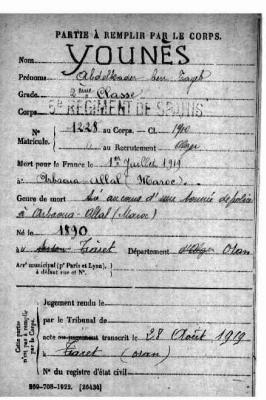 PARTIE À REMPLIR PAR LE CORPS.
Nom YOUNÈS
Prénoms Abdelkader ben Tayeb
Grade 2ème Classe
Corps 5e RÉGIMENT DE SPAHIS
N° Matricule. 1228 au Corps. — Cl. 1910
" au Recrutement Alger
Mort pour la France le 1er Juillet 1919
à Arbaoua Allal (Maroc)
Genre de mort Tué au cours d'une tournée de police
à Arbaoua-Allal (Maroc)
Né le 1890
à Tiaret Département d'Alger Oran
Arrt municipal (pr Paris et Lyon),
à défaut rue et N°.
Cette partie n'est pas à remplir par le Corps.
Jugement rendu le
par le Tribunal de
acte ou jugement transcrit le 28 Août 1919
à Tiaret (Oran)
N° du registre d'état civil
869-708-1922. [26434]